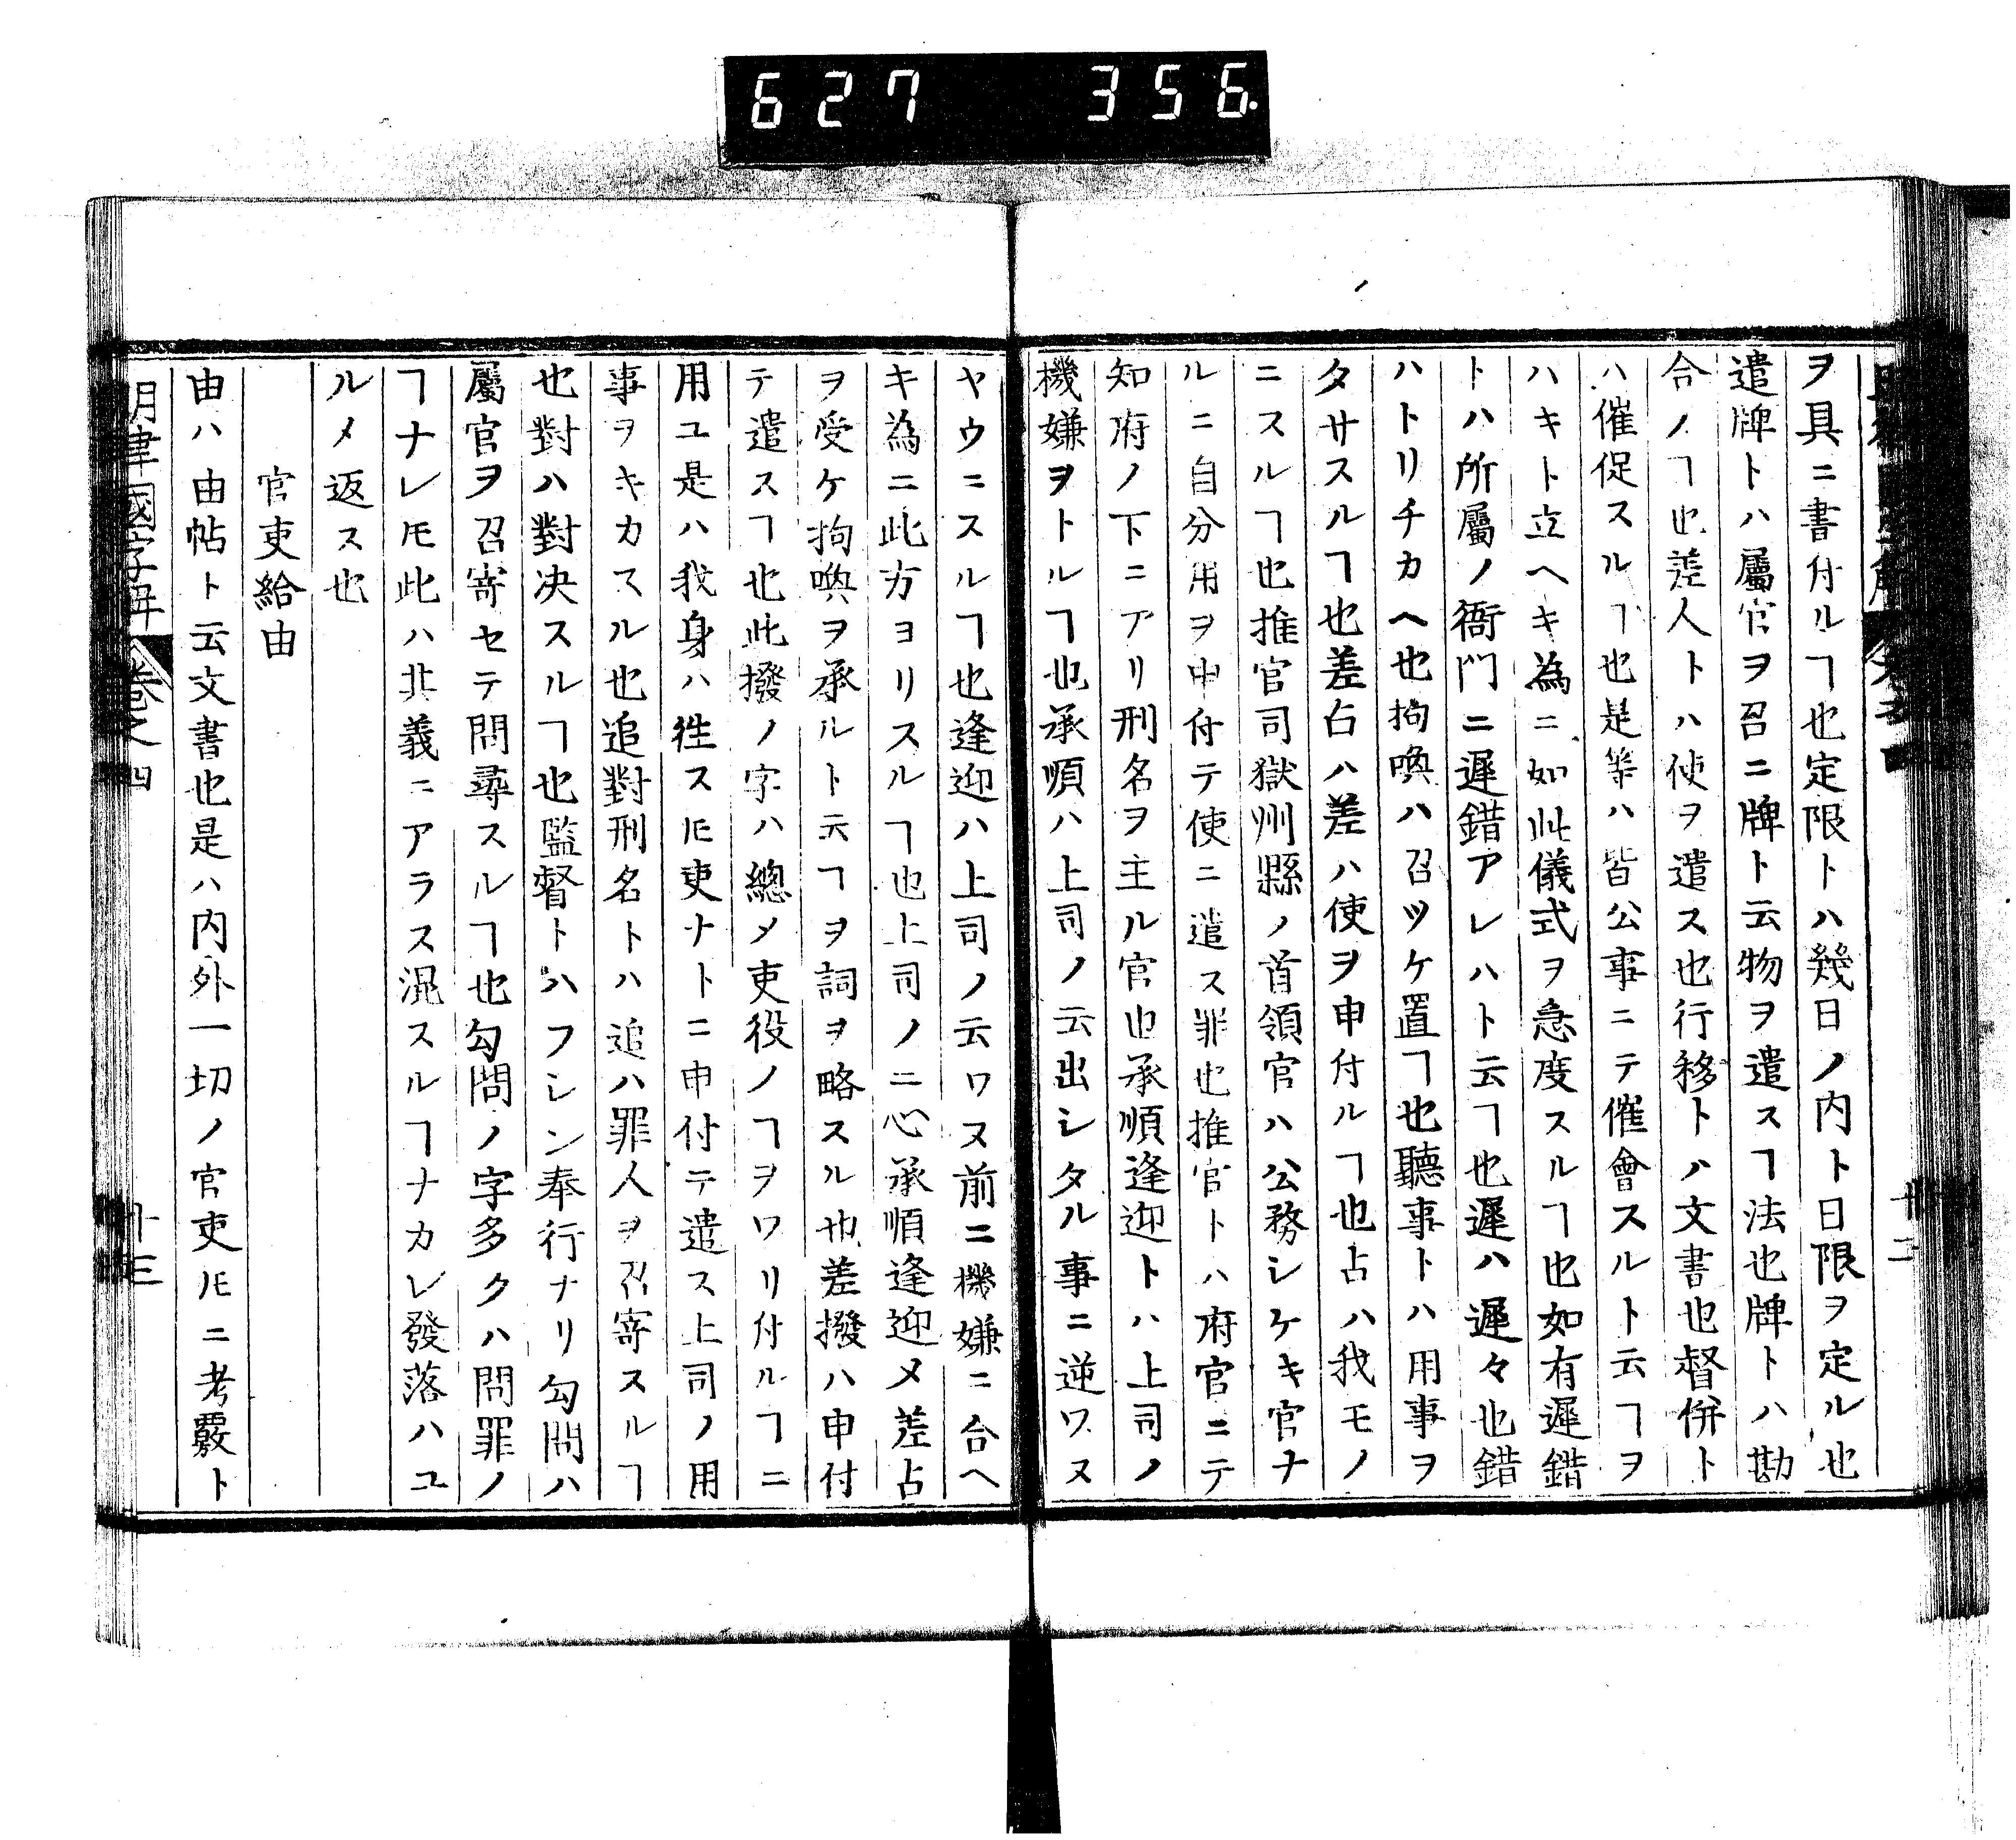 627 356.
ヲ具ニ書付ルヿ也定限トハ幾日ノ内ト日限ヲ定ル也
遣牌トハ屬官ヲ召ニ牌ト云物ヲ遣スヿ法也牌トハ勘
合ノヿ也差人トハ使ヲ遣ス也行移トハ文書也督併ト
ハ催促スルヿ也是等ハ皆公事ニテ催會スルト云ヿヲ
ハキト立ヘキ為ニ如此儀式ヲ急度スルヿ也如有遲錯
トハ所屬ノ衙門ニ遲錯アレハト云ヿ也遲ハ遲々也錯
ハトリチカヘ也拘喚ハ召ツケ置ヿ也聽事トハ用事ヲ
タサスルヿ也差占ハ差ハ使ヲ申付ルヿ也占ハ我モノ
ニスルヿ也推官司獄州縣ノ首領官ハ公務シケキ官ナ
ルニ自分用ヲ申付テ使ニ遣ス罪也推官トハ府官ニテ
知府ノ下ニアリ刑名ヲ主ル官也承順逢迎トハ上司ノ
機嫌ヲトルヿ也承順ハ上司ノ云出シタル事ニ逆ワス
ヤウニスルヿ也逢迎ハ上司ノ云ワヌ前ニ機嫌ニ合ヘ
キ為ニ此方ヨリスルヿ也上司ノニ心承順逢迎メ差占
ヲ受ケ拘喚ヲ承ルト云ヿヲ詞ヲ略スル也差撥ハ申付
テ遣スヿ也此撥ノ字ハ總メ吏役ノヿヲワリ付ルヿニ
用ユ是ハ我身ハ徃スㇳモ吏ナトニ申付テ遣ス上司ノ用
事ヲキカスル也追對刑名トハ追ハ罪人ヲ召寄スルヿ
也對ハ對决スルヿ也監督トハフレン奉行ナリ勾問ハ
屬官ヲ召寄セテ問尋スルヿ也勾問ノ字多クハ問罪ノ
ヿナレㇳモ此ハ其義ニアラス混スルヿナカレ發落ハユ
ルメ返ス也
官吏給由
由ハ由帖ト云文書也是ハ内外一切ノ官吏ㇳモニ考覈ト
明律國字解 卷之四 廿三